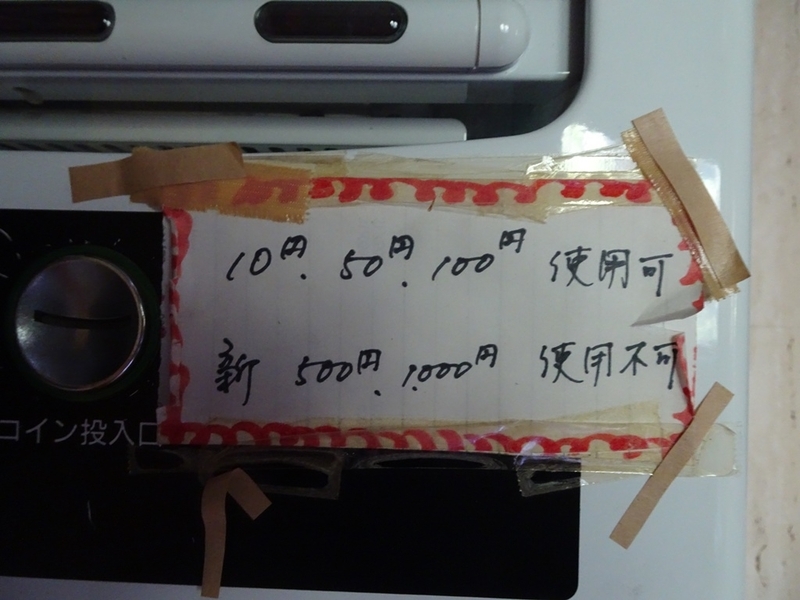 10円. 50円. 100円 使用可
新 500円. 1,000円 使用不可
コイン投入口